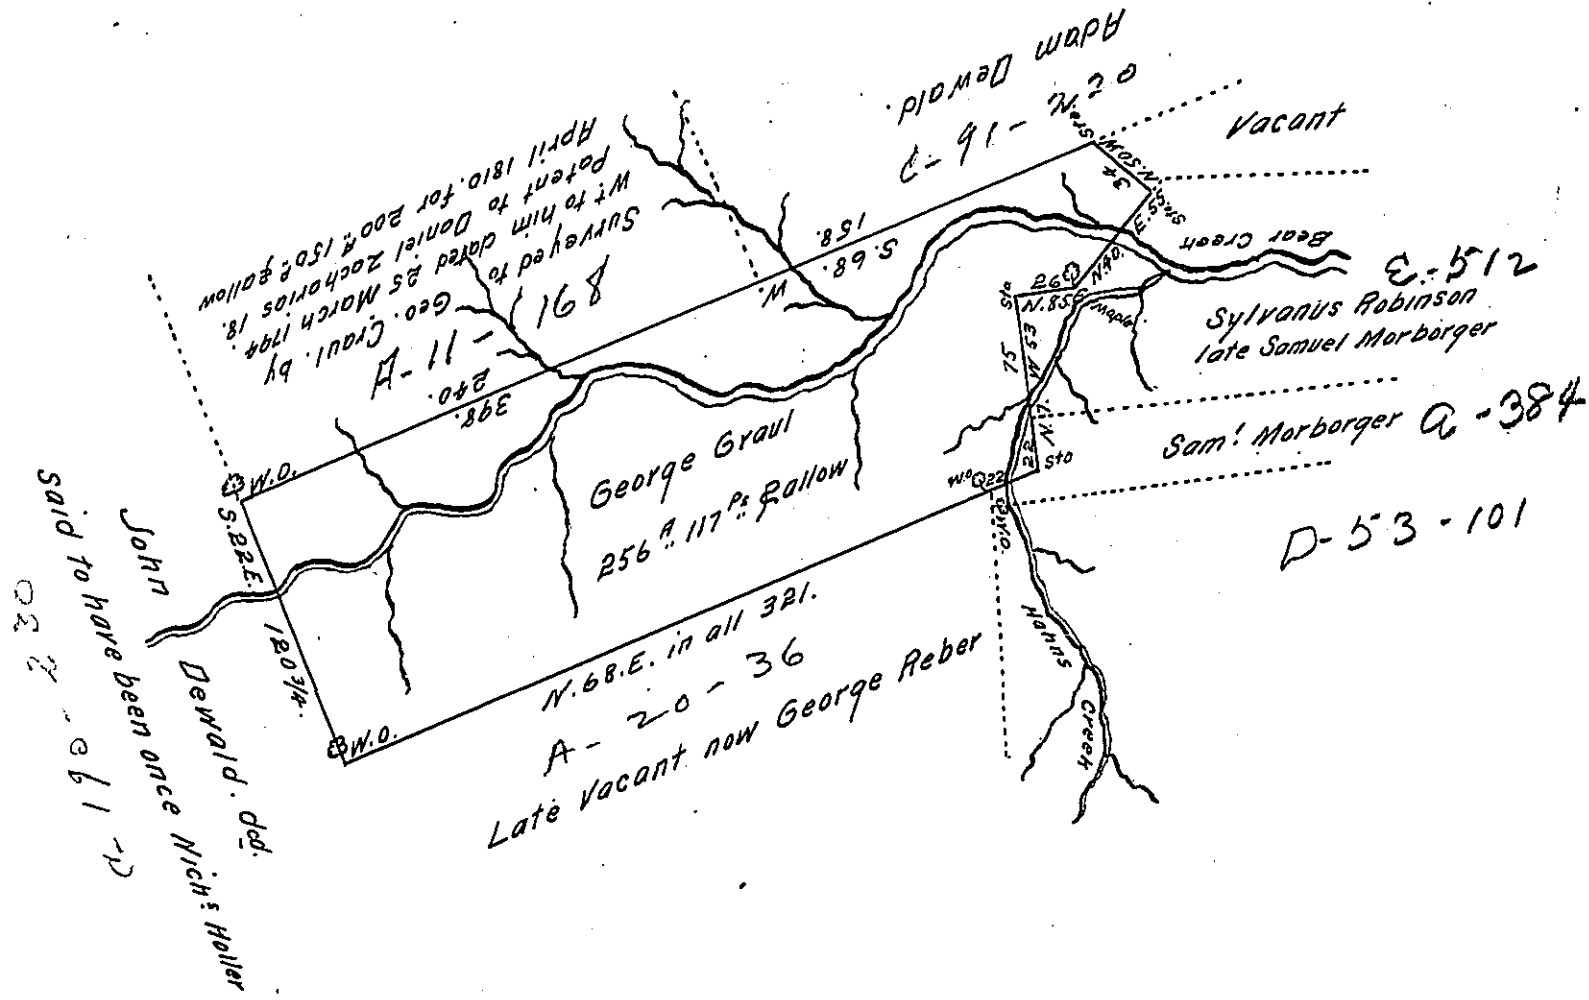 Adam Dewald.
C-91-220
Vacant
Surveyed to Geo. Craul. by
Wt to him dated 25 March 1794.
Patent to Daniel Zacharias 18.
April 1810. for 200 A. 150 P. & allow
A-11-
168
Sto.
N.50W.
34
Sto.
N.40.E.55
Bear Creek
E-512
Sylvanus Robinson
late Samuel Morborger
S.68.W.
158.
240.
398.
Sto
26
N.85
Maple
75
53
N.7.W
22
Sto
W.O
22
W.O.
Sam! Morborger
a-384
D-53-101
George Graul
256 A.. 117 Ps & allow
W.O.
S.22E.
120 3/4.
W.O.
N.68.E. in all 321.
A-20-36
Late Vacant now George Reber
Hahns Creek
John Dewald. decd.
Said to have been once Nichs Holler